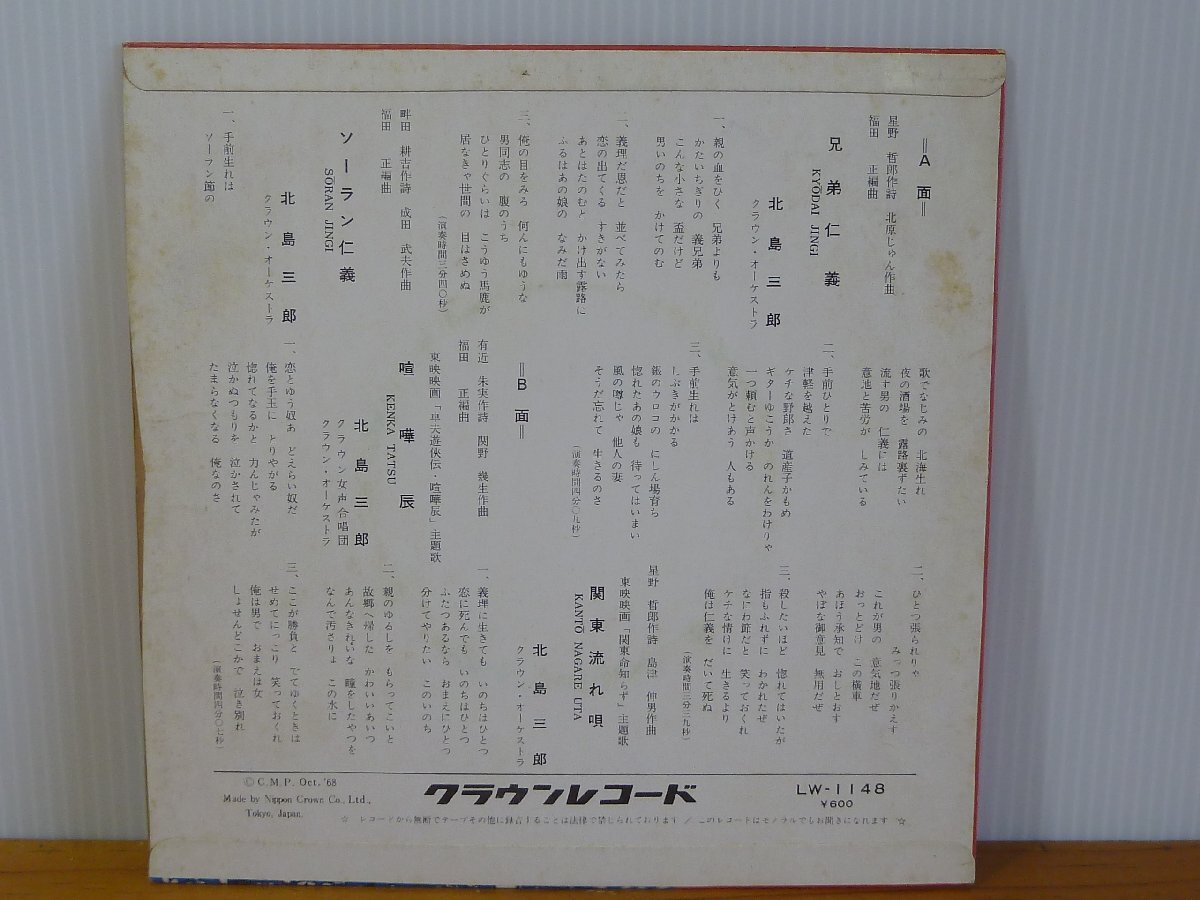 ＝Ａ面＝
星野　哲郎作詩　北原じゅん作曲
福田　正編曲
兄弟仁義
KYŌDAI JINGI
北島三郎
クラウン・オーケストラ
一、親の血をひく　兄弟よりも
かたいちぎりの　義兄弟
こんな小さな　盃だけど
男いのちを　かけてのむ
二、義理だ恩だと　並べてみたら
恋の出てくる　すきがない
あとはたのむと　かけ出す露路に
ふるはあの娘の　なみだ雨
三、俺の目をみろ　何んにもゆうな
男同志の　腹のうち
ひとりぐらいは　こうゆう馬鹿が
居なきゃ世間の　目はさめぬ
（演奏時間三分四〇秒）
畔田　耕吉作詩　成田　武夫作曲
福田　正編曲
ソーラン仁義
SŌRAN JINGI
北島三郎
クラウン・オーケストラ
一、手前生れは
ソーラン節の
歌でなじみの　北海生れ
夜の酒場を　露路裏ずたい
流す男の　仁義には
意地と苦労が　しみている
二、手前ひとりで
津軽を越えた
ケチな野郎さ　道産子かもめ
ギターゆこうか　のれんをわけりゃ
一つ頼むと声かける
意気がとけあう　人もある
三、手前生れは
しぶきがかかる
銀のウロコの　にしん場育ち
惚れたあの娘も　待ってはいまい
風の噂じゃ　他人の妻
そうだ忘れて　生きるのさ
（演奏時間四分〇九秒）
＝Ｂ面＝
有近　朱実作詩　関野　幾生作曲
福田　正編曲
東映映画「早夭遊侠伝　喧嘩辰」主題歌
喧嘩辰
KENKA TATSU
北島三郎
クラウン女声合唱団
クラウン・オーケストラ
一、恋とゆう奴ぁ　どえらい奴だ
俺を手玉に　とりやがる
惚れてなるかと　力んじゃみたが
泣かぬつもりを　泣かされて
たまらなくなる　俺なのさ
二、ひとつ張られりゃ
みっつ張りかえす
これが男の　意気地だぜ
おっとどけ　この横車
あほう承知で　おしとおす
やぼな御意見　無用だぜ
三、殺したいほど　惚れてはいたが
指もふれずに　わかれたぜ
なにわ節だと　笑っておくれ
ケチな情けに　生きるより
俺は仁義を　だいて死ぬ
（演奏時間三分三九秒）
星野　哲郎作詩　島津　伸男作曲
東映映画「関東命知らず」主題歌
関東流れ唄
KANTŌ NAGARE UTA
北島三郎
クラウン・オーケストラ
一、義理に生きても　いのちはひとつ
恋に死んでも　いのちはひとつ
ふたつあるなら　おまえにひとつ
分けてやりたい　このいのち
二、親のゆるしを　もらってこいと
故郷へ帰した　かわいいあいつ
あんなきれいな　瞳をしたやつを
なんで汚さりょ　この水に
三、ここが勝負と　でてゆくときは
せめてにっこり　笑っておくれ
俺は男で　おまえは女
しょせんどこかで　泣き別れ
（演奏時間四分〇七秒）
© C.M.P. Oct. '68
Made by Nippon Crown Co., Ltd.,
Tokyo, Japan.
クラウンレコード
LW-1148
¥600
☆　レコードから無断でテープその他に録音することは法律で禁じられております　／　このレコードはモノラルでもお聞きになれます　☆